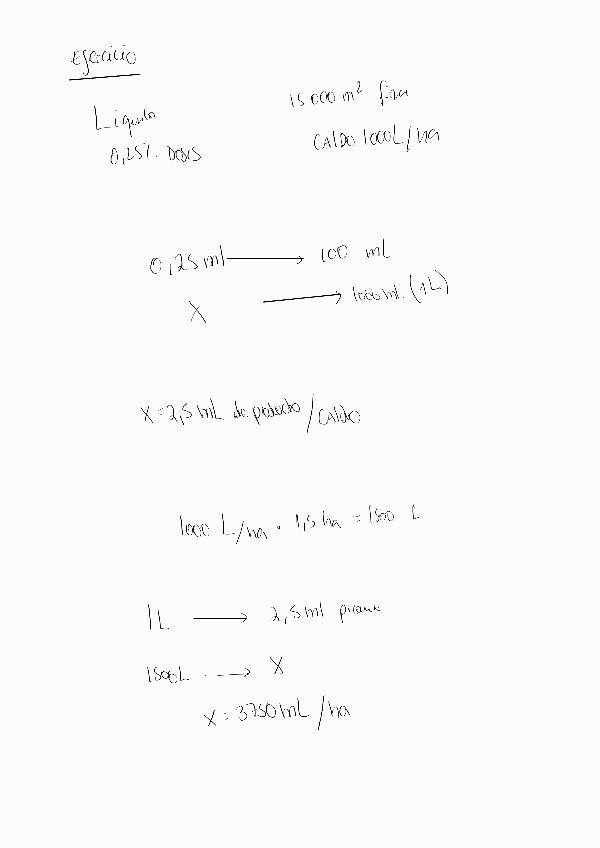 Ejercicio
Líquido
0,25% DOSIS
15000 m² finca
CALDO 1000L/ha
0,25 ml → 100 ml
X → 1000 ml. (1L)
X = 2,5 mL de producto / CALDO
1000 L/ha · 1,5 ha = 1500 L
1L. → 2,5 ml
1500L → X
X = 3750 mL/ha